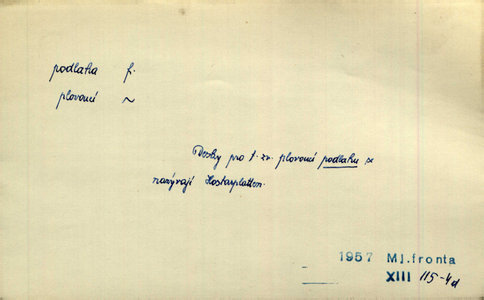 podlaha f.
plovoucí ~
Desky pro t. zv. plovoucí podlahu se
nazývají Hostaplatten.
1957 Ml.fronta
XIII 115-4d